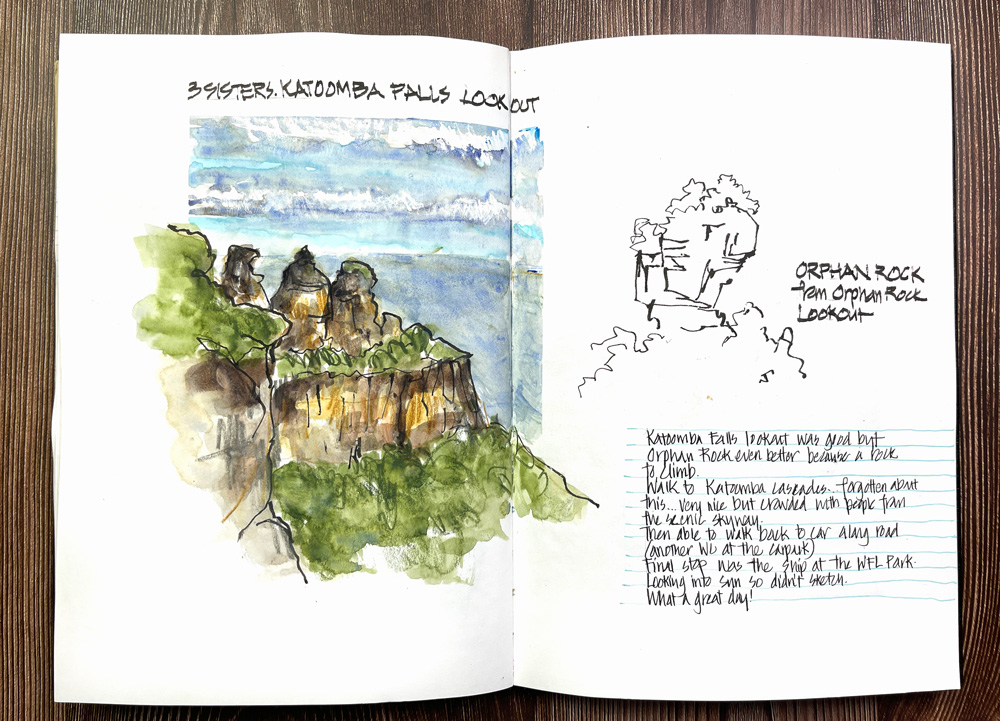 3 SISTERS. KATOOMBA FALLS LOOKOUT
ORPHAN ROCK
from Orphan Rock
LOOKOUT
Katoomba Falls lookout was good but
Orphan Rock even better because a rock
to climb.
Walk to Katoomba cascades.. forgotten about
this... very nice but crowded with people from
the scenic skyway.
Then able to walk back to car along road
(another WC at the carpark)
Final stop was the ship at the WFL Park.
Looking into sun so didn't sketch.
What a great day!